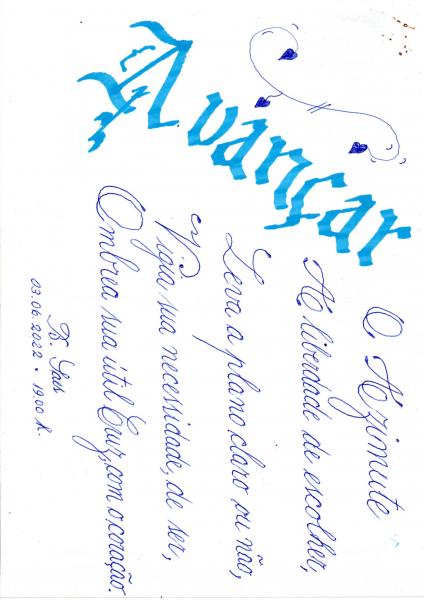 Avançar
O Azimute
A liberdade de escolher,
Leva a plano claro ou não,
Vigia sua necessidade, de ser,
Ombrea sua útil Cruz, com o coração.
03.06.2022 • 19:00 h.